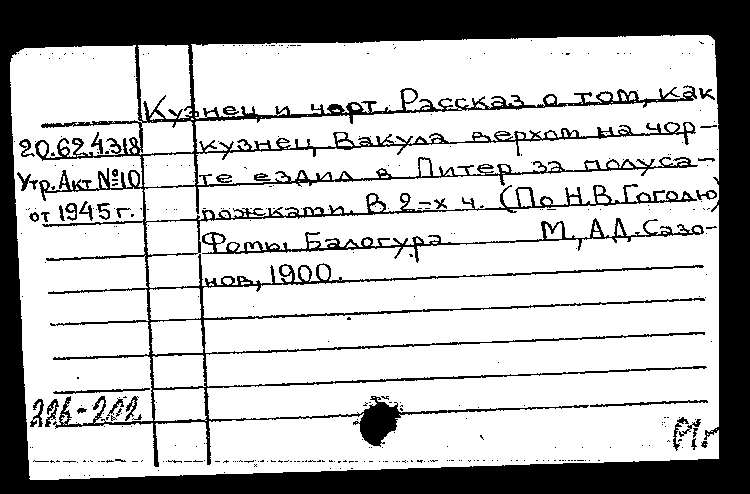 Кузнец и чорт. Рассказ о том, как
20.62.4.318 кузнец Вакула верхом на чор-
Утр. Акт №10 те ездил в Питер за полуса-
от 1945 г. пожками. В 2-х ч. (По Н.В. Гоголю)
Фомы Балогура М., А.Д. Сазо-
нов, 1900.
226-202